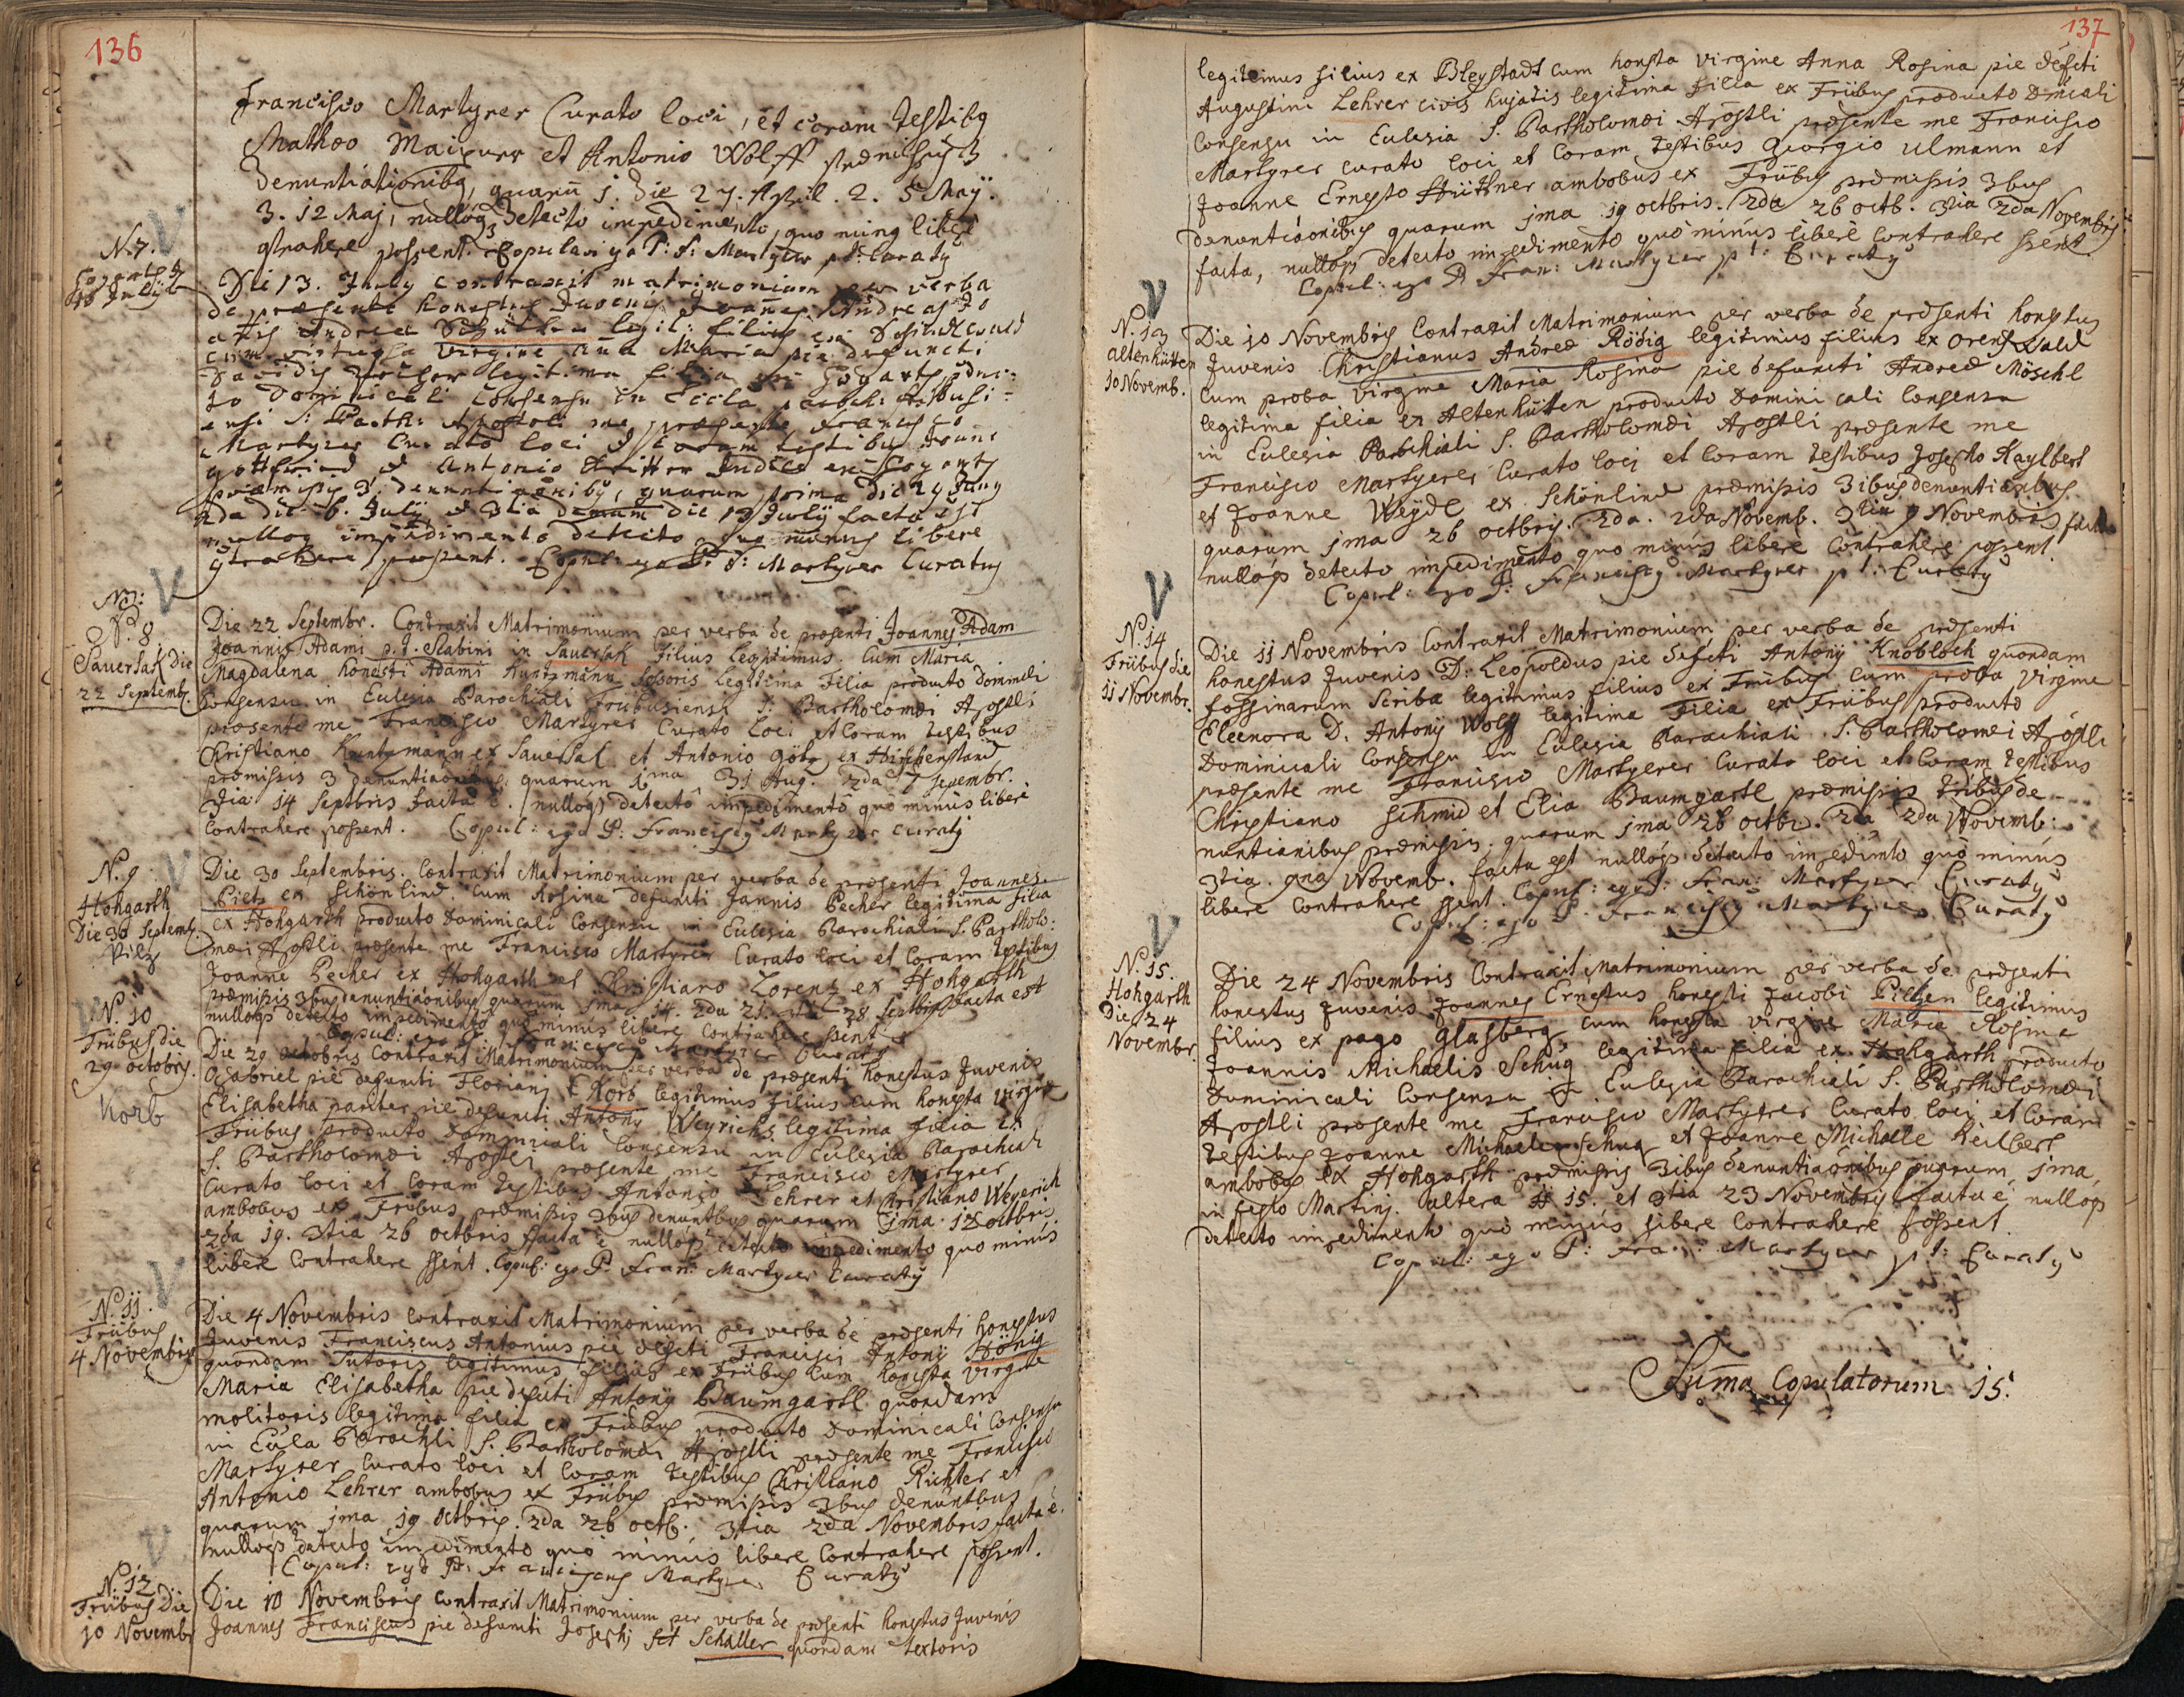 136
Francisco Martyrer Curato loci, et coram testibq
Matheo et Antonio Wolff præmissis 3
Denuntiationibq, quarū 1. die 27. April. 2. 5 Maÿ.
3. 12 Maj, nulloq detecto impedimento, quo minq liberè
ɔtrahere possent. Copulavi ego P: F: Martyrer pt: Curatq
N. 7.
13 Julÿ
Die 13. July contraxit matrimonium per verba
de præsenti honestus Juvenis Joanes Andreas
Andreæ legit: filius ex
cum virtuosa virgine Aña Maria pie defuncti
Davidis legitima filia ex Hogarth
to Dominicali Consensu in Eccla paroch:
S: Barth: Apostoli me præsente Francisco
Martyrer Curato loci et coram testibus
Gottfried et Antonio ex Hogarth
præmissis 3. denuntiaōnibq, quarum prima die 29 Juny
2da die 6. Julÿ et 3tia die 13 Julÿ facta est
nulloq impedimento detecto quo minus libere
ɔtrahere possent. Copul: ego P: F: Martyrer Curatus
N. 8
Sauersak die
22 Septemb.
Die 22 Septembr. Contraxit Matrimonium per verba de præsenti Joannes Adam
Joannis Adami p. t. Scabini in Sauersak filius legitimus. Cum Maria
Magdalena honesti Adami Kuntzmann fossoris legitima filia producto dominicli
Consensu in Eclesia Parochiali Fribusiensi S: Bartholomæi Apostli
præsente me Francisco Martyrer Curato loci et Coram testibus
Christiano Kuntzmann ex Sauersak et Antonio Götz ex Hirschenstand
præmissis 3 denuntiaōnibus quarum 1ma 31 Aug. 2da 7 Septembr.
3tia 14 Septbris facta ē. nulloqs detecto impedimento quò minùs liberè
Contrahere possent. Copul: ego P: Franciscq Martyrer Curatq
N. 9
Hohgarth
Die 30 Septemb.
Pilz
Die 30 Septembris. Contraxit Matrimonium per verba de præsenti Joannes
Pietz ex Schönlind. Cum Rosina defuncti Joannis Pecher legitima filia
ex Hohgarth producto Dominicali Consensu in Eclesia Parochiali S. Bartholo:
mæi Apstli præsente me Francisco Martyrer Curato loci et Coram testibus
Joanne Pecher ex Hohgarth et Christiano Lorentz ex Hohgarth
præmissis 3bus denuntiaōnibus quarum 1ma 14. 2da 21. 3tia 28 Septbris facta est
nulloqs detecto impedimento quò minus liberè Contrahere ssent
Copul: ego P. Franciscq Martyrer Curatq
N. 10
Fribus die
29 octobris.
Korb
Die 29 octobris Contraxit Matrimonium per verba de præsenti honestus Juvenis
Gabriel piè defuncti Floriani Korb legitimus filius cum honesta virgine
Elisabetha pariter pie defuncti Antonÿ Weyrichs legitima filia ex
Fribus producto Dominicali Consensu in Eclesia Parochiali
S. Bartholomæi Apostli præsente me Francisco Martyrer
Curato loci et Coram testibus Antonio Lehrer et Christiano Weyerich
ambobus ex Fribus præmissis 3bus denuntbus quarum 1ma 12 octbris
2da 19. 3tia 26 octbris facta ē nulloqs detecto impedimento quo minùs
liberè Contrahere ssent. Copul: ego P. Fran: Martyrer Curatq
N. 11.
Fribus
4 Novembris
Die 4 Novembris Contraxit Matrimonium per verba de præsenti honestus
Juvenis Franciscus Antonius piè defcti Francisci Antonÿ Hönig
quondam Sutoris legitimus filius ex Fribus cum honesta virgine
Maria Elisabetha piè defcti Antonÿ Baumgartl quondam
molitoris legitima filia ex Fribus producto Dominicali Consensu
in Ecla Parochli S. Bartholomæi Apostli præsente me Francisco
Martyrer Curato loci et Coram testibus Christiano Richter et
Antonio Lehrer ambobus ex Fribus præmissis 3bus denuntbus
quarum 1ma 19 octbris. 2da 26 octb. 3tia 2da Novembris facta ē.
nulloqs detecto impedimento quò minùs liberè Contrahere possent.
Copul: ego P: Franciscus Martyrer Curatq
N. 12
Fribus Die
10 Novembr
Die 10 Novembris Contraxit Matrimonium per verba de præsenti honestus Juvenis
Joannes Franciscus piè defuncti Josephi Schaller quondam textoris
137
legitimus filius ex Bleystadt cum honsta virgine Anna Rosina pie defcti
Augustini Lehrer civis hujatis legitima filia ex Fribus producto Dnicali
Consensu in Eclesia S. Bartholomæi Apostli præsente me Francisco
Martyrer Curato loci et Coram testibus Georgio Ulmann et
Joanne Ernesto Hüttner ambobus ex Fribus præmissis 3bus
denuntiaōnibus quarum 1ma 19 octbris. 2da 26 octb. 3tia 2da Novembris
facta, nulloqs detecto impedimento quò minùs liberè Contrahere ssent
Copul: ego P Fran: Martyrer pt: Curatq
N. 13
Altenhütten
10 Novemb.
Die 10 Novembris Contraxit Matrimonium per verba de præsenti honestus
Juvenis Christianus Andreæ Rödig legitimus filius ex
Cum proba virgine Maria Rosina piè defuncti Andreæ Möschl
legitima filia ex Altenhütten producto Dominicali Consensu
in Eclesia Parochiali S. Bartholomæi Apostli præsente me
Francisco Martyrer Curato loci et Coram testibus Josepho Kaylbert
et Joanne Weÿdl ex Schönlind præmissis 3ibus denuntiaōnibus
quarum 1ma 26 octbris. 2da. 2da Novemb. 3tia 9 Novembris facta
nulloqs detecto impedimento quo minùs liberè Contrahere possent
Copul: ego P: Franciscq Martyrer pt: Curatq
N. 14
Fribus die
11 Novembr.
Die 11 Novembris Contraxit Matrimonium per verba de præsenti
honestus Juvenis D: Leopoldus pie defcti Antonÿ Knobloch quondam
fossinarum Scriba legitimus filius ex Fribus Cum proba virgine
Eleonora D. Antonÿ Wolff legitima filia ex Fribus producto
Dominicali Consensu in Eclesia Parochiali S. Bartholomæi Apstli
præsente me Francisco Martyrer Curato loci et Coram testibus
Christiano Schmid et Elia Baumgartl præmissis tribus de-
nuntianibus præmissis quarum 1ma 26 octbr. 2da 2da Novemb:
3tia. 9na Novemb. facta est nulloqs detecto impedimto quò minùs
libere Contrahere ssent. Copul: ego P: Fran: Martyrer Curatq
Copul: ego P. Franciscq Martyrer Curatq
N. 15.
Hohgarth
Die 24
Novembr.
Die 24 Novembris Contraxit Matrimonium per verba de præsenti
honestus Juvenis Joannes Ernestus honesti Jacobi Pieltzen legitimus
filius ex pago Glasberg, cum honesta virgine Maria Rosina
Joannis Michaelis Schug legitima filia ex Hohgarth producto
Dominicali Consensu in Eclesia Parochiali S. Bartholomæi
Apostli præsente me Francisco Martyrer Curato loci et Coram
testibus Joanne Michaele Schug et Joanne Michaele Keilbert
ambobus ex Hohgarth præmissis 3ibus denuntiaōnibus quarum 1ma
in festo Martini. altera 15. et 3tia 23 Novembris facta ē, nulloqs
detecto impedimento quò minùs libere Contrahere possent.
Copul: ego P: Fran: Martyrer pt: Curatq
Suma Copulatorum 15.